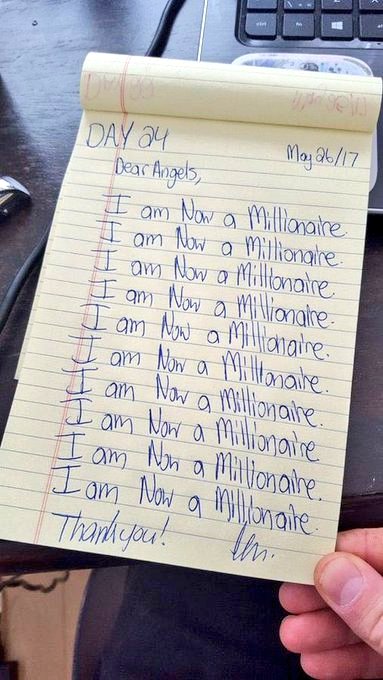 DAY 24
May 26/17
Dear Angels,
I am Now a Millionaire.
I am Now a Millionaire.
I am Now a Millionaire.
I am Now a Millionaire.
I am Now a Millionaire.
I am Now a Millionaire.
I am Now a Millionaire.
I am Now a Millionaire
I am Now a Millionaire.
I am Now a Millionaire.
Thank you!